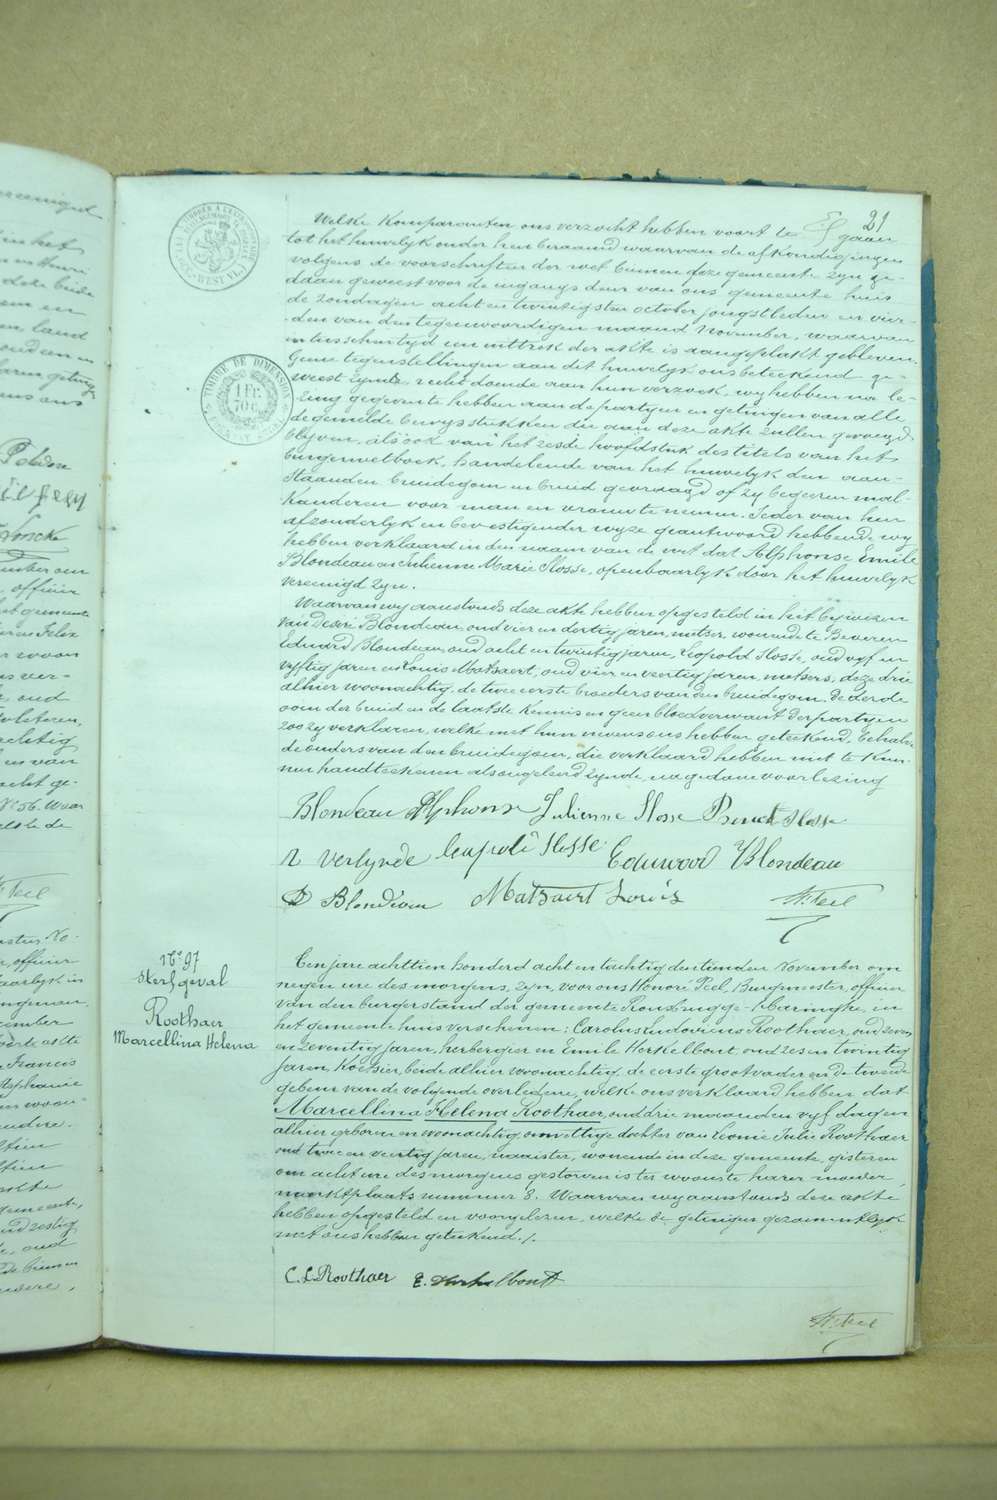 21
TIMBRÉ A L'EXTRAORDINAIRE
OCC. - WEST VL.
TIMBRE DE DIMENSION
1 FR.
70 C.
Welke Komparanten ons verzocht hebben voort te gaan
tot het huwelyk onder hen beraamd waarvan de afkondigingen
volgens de voorschriften der wet binnen deze gemeente zyn ge-
daan geweest voor de ingangs deur van ons gemeente huis
de zondagen acht en twintigsten october jongstleden en vier-
den van den tegenwoordigen maand November, waarvan
intusschentyd een uittrek der akte is aangeplakt gebleven.
Geene tegenstellingen aan dit huwelyk ons beteekend ge-
weest zynde, recht doende aan hun verzoek, wy hebben na le-
zing gegeven te hebben aan de partyen en getuigen van alle
de gemelde bewysstukken die aan deze akte zullen gevoegd
blyven, alsook van het zesde hoofdstuk des titels van het
burgerwetboek, handelende van het huwelyk den aan-
staanden bruidegom en bruid gevraagd of zy begeeren mal-
kanderen voor man en vrouw te nemen. Ieder van hun
afzonderlyk en bevestigender wyze geantwoord hebbende, wy
hebben verklaard in den naam van de wet dat Alphonse Emile
Blondeau en Julienne Marie Slosse, openbaarlyk door het huwelyk
vereenigd zyn.
Waarvan wy aanstonds deze akte hebben opgesteld in het bywezen
van Desiré Blondeau, oud vier en dertig jaren, metser, wonende te Beveren
Eduard Blondeau, oud acht en twintig jaren, Leopold Slosse, oud vyf en
vyftig jaren en Louis Matsaert, oud vier en veertig jaren, metsers, deze drie
alhier woonachtig, de twee eerste broeders van den bruidegom, de derde
oom der bruid en de laatste kennis en geen bloedverwant der partyen
zoo zy verklaren, welke met hun nevens ons hebben geteekend, behalve
de ouders van den bruidegom, die verklaard hebben niet te kun-
nen handteekenen als ongeleerd zynde, na gedane voorlezing
Blondeau Alphonse Julienne Slosse Benoit Slosse
Leopold Slosse Edward Blondeau
D Blondeau Matsaert Louis
N° 97
Sterfgeval
Roothaer
Marcellina Helena
Een jare achttien honderd acht en tachtig den tienden November om
negen ure des morgens, zyn, voor ons Honoré Peel, Burgmeester, officier
van den burgerstand der gemeente Rousbrugge-Haringhe, in
het gemeente huis verschenen: Carolus Ludovicus Roothaer, oud zeven
en zeventig jaren, herbergier en Emile Herkelbout, oud zes en twintig
jaren, Koetsier, beide alhier woonachtig, de eerste grootvader en de tweede
gebuur van de volgende overledene, welke ons verklaard hebben dat
Marcellina Helena Roothaer, oud drie maanden vyf dagen
alhier geboren en woonachtig, onwettige dochter van Leonie Julie Roothaer
oud twee en veertig jaren, naaister, wonende in deze gemeente, gisteren
om acht ure des morgens gestorven is ter woonste harer moeder,
marktplaats nummer 8. Waarvan wy aanstonds deze akte
hebben opgesteld en voorgelezen, welke de getuigen gezamentlyk
met ons hebben geteekend./.
C. L. Roothaer E. Herkelbout
H. Peel